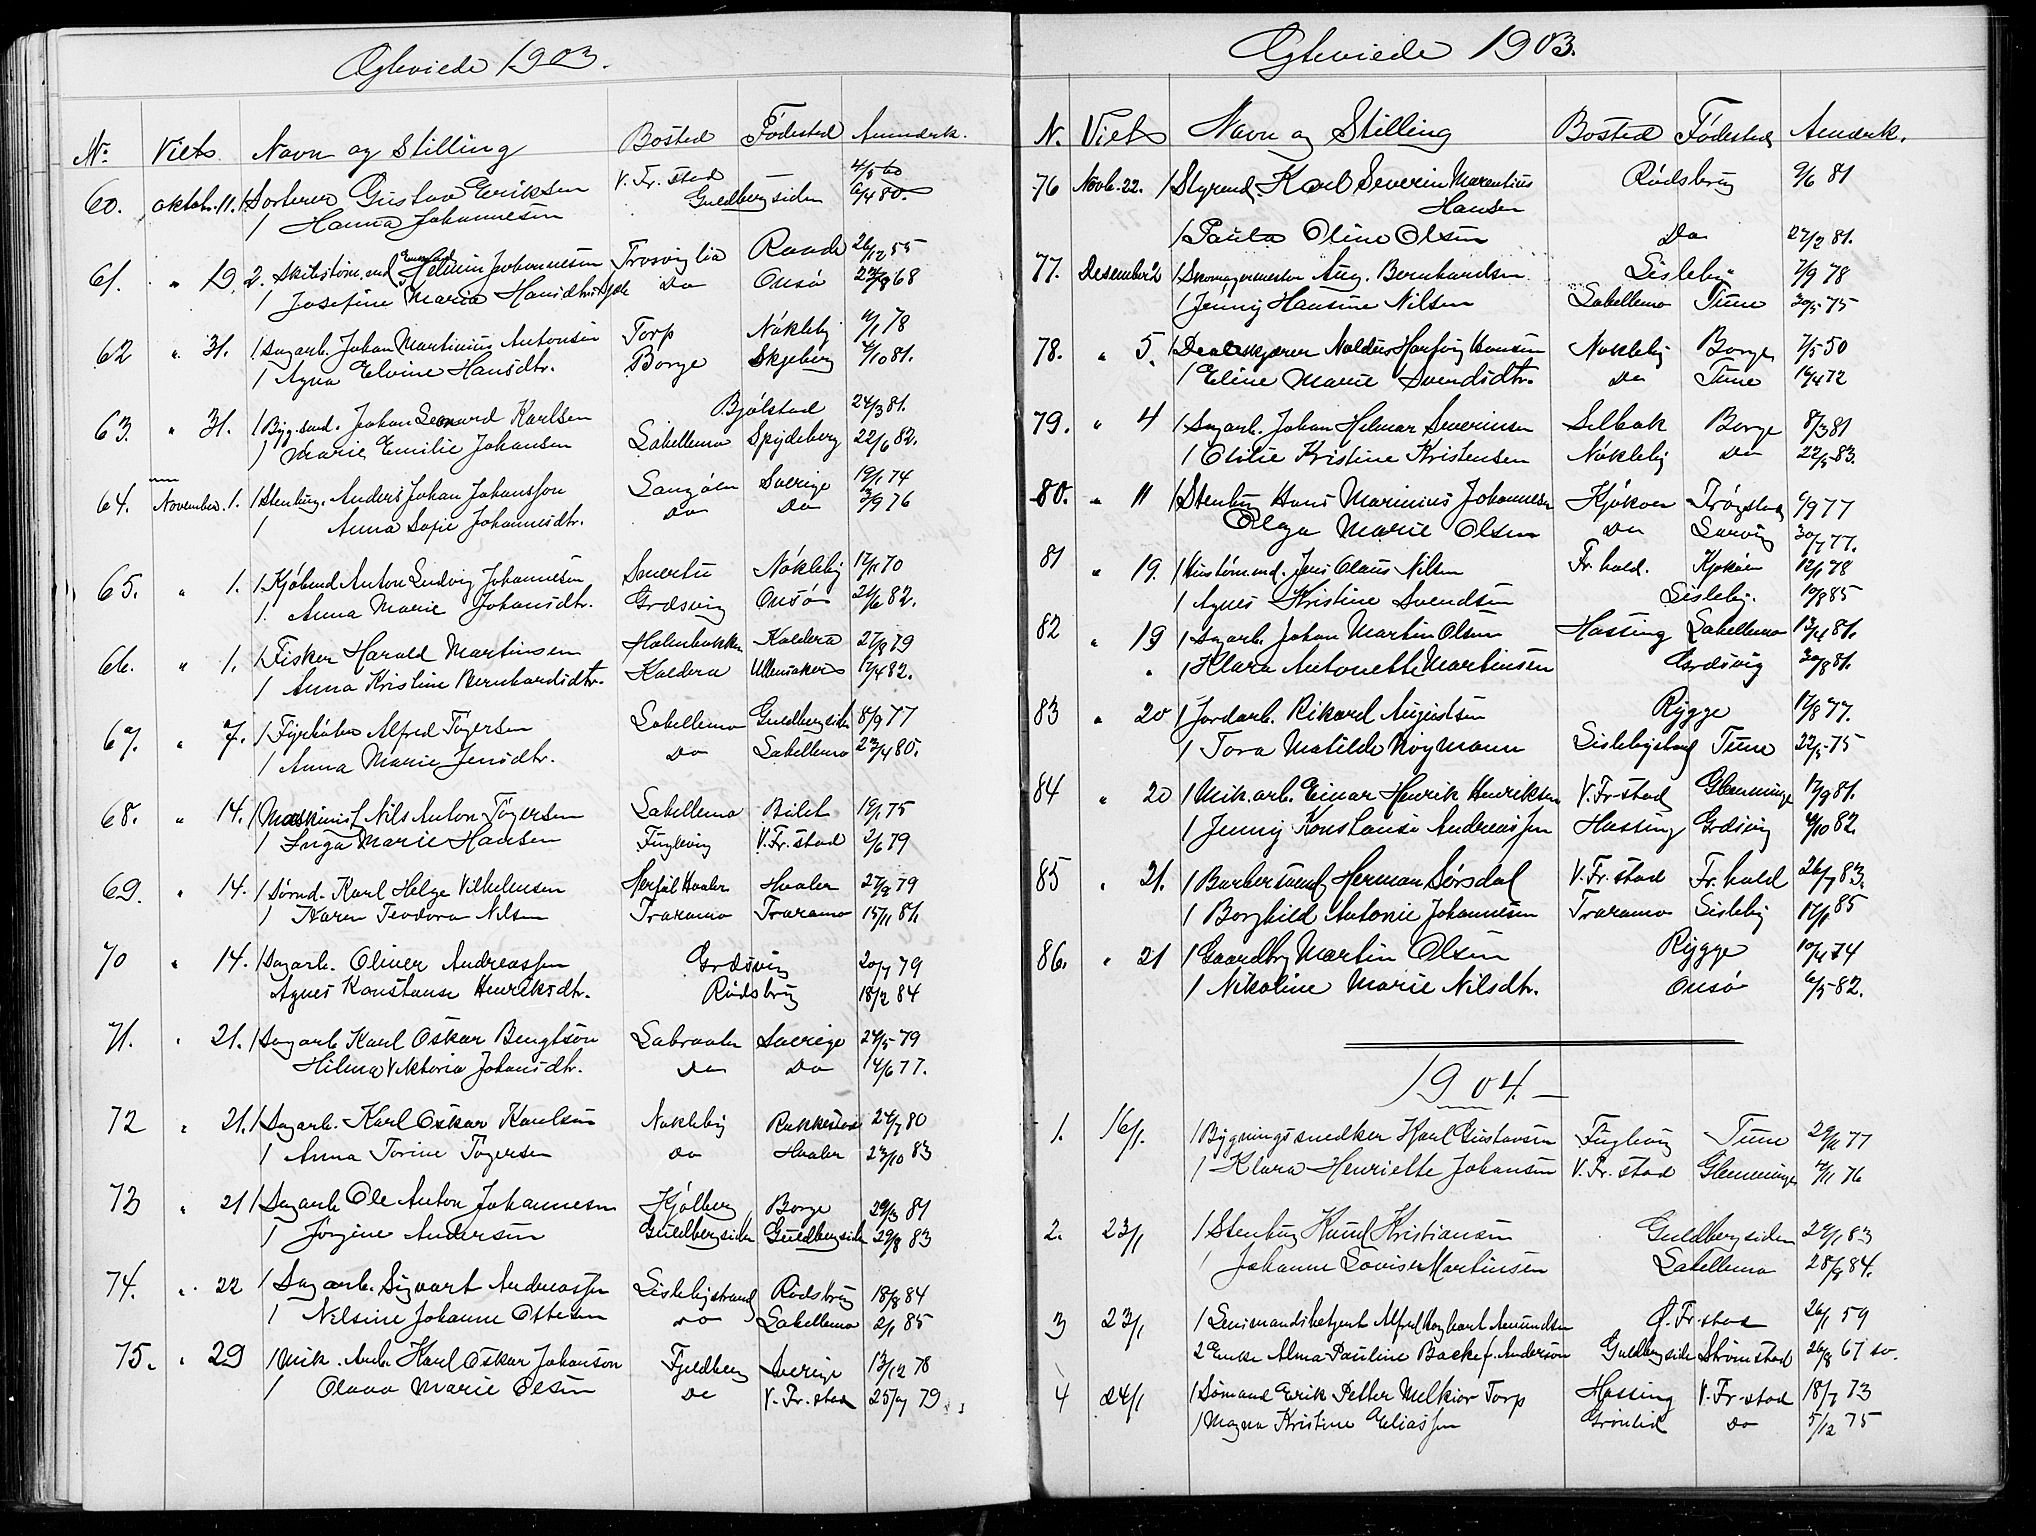 Ægteviede 1903.
No. Viets Navn og Stilling Bosted Fødested Anmerk.
60. oktobr. 11. 1 Sorterer Gustav Eriksen V. Fr. stad 4/5 60
1 Hanna Johannesen Guldbergsiden 6/4 80.
61. " 19. 2. Skibstøm.md Helmin Johannesen Trosviglia Raade 26/12 55
1 Josefine Marie Hansdtr. Do Onsø 68
62 " 31. 1 Sagarb. Johan Martinius Antonsen Torp Nøkleby 78
1 Agna Elvine Hansdtr. Borge Skjeberg 4/10 81.
63. " 31. 1 Byg.snd. Johan Leonard Karlsen Bjølstad 24/3 81.
1 Marie Emilie Johansen Labellemo Spydeberg 22/6 82.
64. November 1. 1 Stenhug. Anders Johan Johansson Langøen Sverige 19/1 74
1 Anna Sofie Johannesdtr. Do Do 76
65. " 1. 1 Kjøbmd Anton Ludvig Johannesen Smertu Nøkleby 70
1. Anna Marie Johansdtr. Græsvig Onsø 24/6 82.
66. " 1. 1 Fisker Harald Martinsen Holmbakken Kaldera 27/8 79
1 Anna Kristine Bernhardsdtr. Kaldera Ullensaker 17/4 82.
67. " 7. 1 Fyrbøter Alfred Tøgersen Labellemo Guldbergsiden 8/9 77
1 Anna Marie Jensdtr. Do Labellemo 23/4 80.
68. " 14. 1 Maskinist Nils Anton Tøgersen Labellemo Bilet 19/1 75
1 Inga Marie Hansen Fuglevig V. Fr. stad 2/6 79
69. " 14. 1 Sømd. Karl Helge Vilhelmsen Herføl Hvaler Hvaler 27/9 79
1 Karen Teodora Nilsen Traramo Traramo 15/11 81.
70 " 14. 1 Sagarb. Oliver Andreassen Græsvig 20/7 79
Agnes Konstanse Henriksdtr. Rødsbrug 18/2 84
71. " 21. 1 Sagarb Karl Oskar Bengtson Labraaten Sverige 24/5 79
Hilma Viktoria Johansdtr. Do Do 14/6 77.
72 " 21. 1 Sagarb. Karl Oskar Karlsen Nøkleby Rakkestad 24/7 80
1 Anna Torine Tøgersen do Hvaler 23/10 83
73 " 21 1 Sagarb Ole Anton Johannesen Kjølberg Borge 29/3 81
1 Jørgine Andersen Guldbergsiden Guldbergsiden 29/8 83
74. " 22 1 Sagarb. Sigvart Andreassen Lislebystrand Rødsbrug 18/8 84
1 Nelsine Johanne Ottesen do Labellemo 2/1 85
75. " 29 1 Mik. Arb. Karl Oskar Johanson Fjeldberg Sverige 13/12 78
1 Olava Marie Olsen Do V. Fr. stad 25/7 79
Ægteviede 1903.
N. Viets Navn og Stilling Bosted Fødested Anmerk.
76 Novb. 22. 1 Styrmd Karl Severin Marentius Rødsbrug 9/6 81
Hansen
1 Paula Oline Olsen Do 27/2 81.
77. Desember 2 1 Skomagermester Aug. Bernhardsen Lisleby 7/9 78
1 Jenny Hansine Nilsen Labellemo Tune 30/5 75
78. " 5. 1 Dealskjærer Naldus Harfvig Hansen Nøkleby Borge 7/5 50
1 Eline Marie Svendsdtr. Do Tune 72
79. " 4 1 Sagarb. Johan Helmar Severinsen Selbak Borge 8/3 81
1 Otilie Kristine Kristensen Nøkleby Do 22/5 83.
80. " 11 1 Stenhug Hans Marinius Johannesen Kjøkøen Trøgstad 6/9 77
Olga Marie Olsen Do Larvig 30/7 77.
81 " 19. 1 Hustøm.md. Jens Olaus Nilsen Fr. hald. Kjøkøen 12/1 78
1 Agnes Kristine Svendsen Lisleby. 19/8 85
82 " 19 1 Sagarb. Johan Martin Olsen Hassing Labellemo 13/4 81.
" 1 Klara Antonette Martinsen Græsvig 30/8 81.
83 " 20 1 Jordarb. Rikard Augustsen Rygge 17/8 77.
1 Tora Matilde Røymann Lislebystrand Tune 22/5 75
84 " 20 1 Mik.arb. Einar Henrik Henriksen V. Fr-stad Glemminge 17/9 81.
1 Jenny Konstanse Andreassen Hassing Græsvig 82.
85 " 21. 1 Barbersvend Herman Sørsdal V. Fr. stad Fr. hald 26/7 83.
1 Borghild Antonie Johannesen Traramo Lisleby 17/1 85
86. " 21 1 Gaardbr. Martin Olsen Rygge 10/4 74
1 Nikoline Marie Nilsdtr. Onsø 6/5 82.
1904.
1. 16/1. 1 Bygningssnedker Karl Gustavsen Fuglevig Tune 77
1 Klara Henriette Johansen V. Fr. stad Glemminge 76
2. 23/1 1 Stenhug Knud Kristiansen Guldbergsiden 24/1 83
1 Johanne Lovise Martinsen Labellemo 28/8 84.
3 23/1 1 Lensmandsbetjent Alfred Amundsen Ø. Fr. stad 26/1 59
2 Enke Alma Pauline Backe f. Anderson Guldbergsiden Strømstad 26/8 67
4 24/1 1 Sømand Erik Petter Melkior Torp Hassing V. Fr-stad 18/7 73
1 Magna Kristine Eliassen Grønlid Do 5/12 75